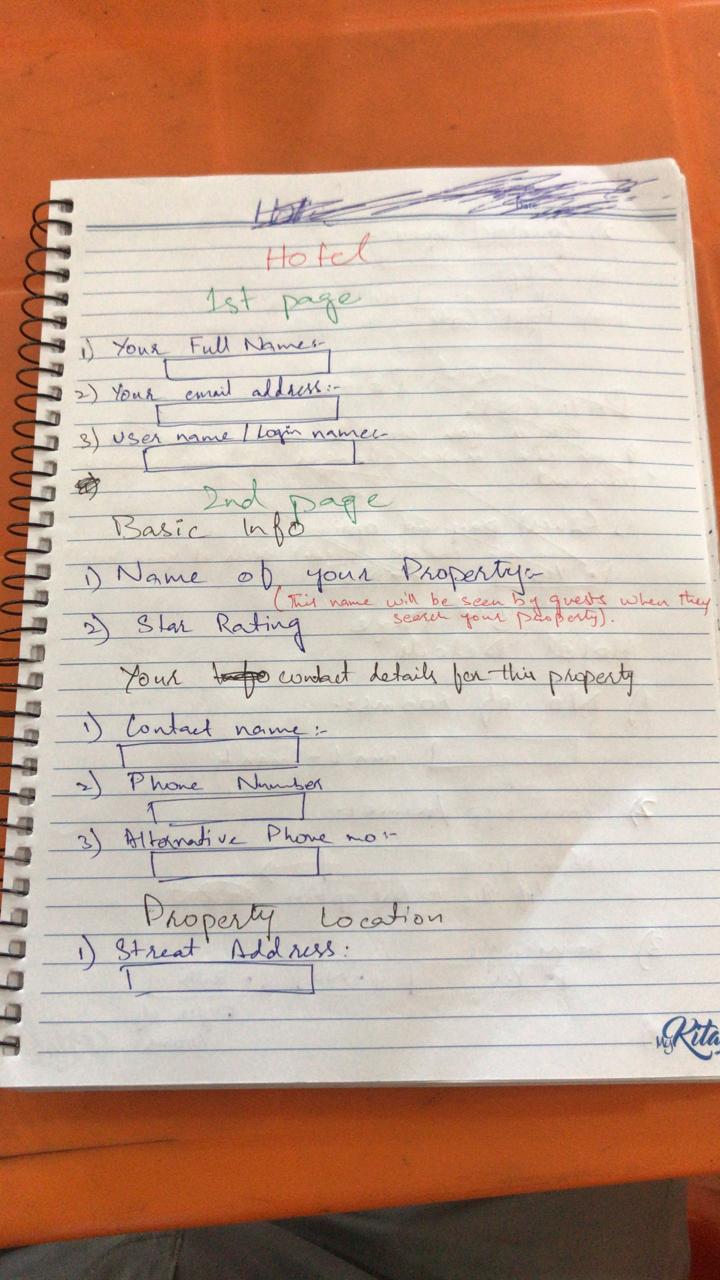 Date
Hotel
1st page
1) Your Full Name:-
2) Your email address:-
3) User name / Login name:-
2nd page
Basic Info
1) Name of your Property:-
(This name will be seen by guests when they
search your property).
2) Star Rating
Your contact details for this property
1) Contact name:-
2) Phone Number
3) Alternative Phone no:-
Property Location
1) Streat Address:
My Kita